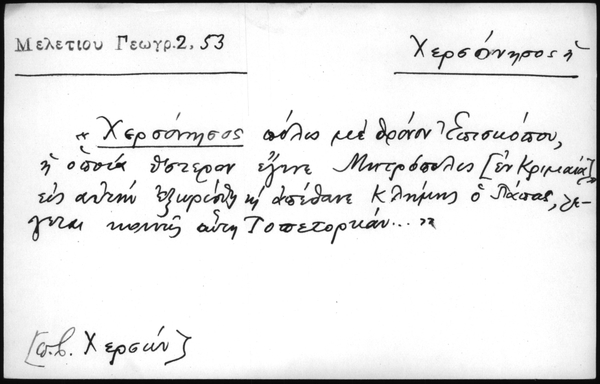 Μελετίου Γεωγρ.2, 53
Χερσόνησος ἡ
"Χερσόνησος πόλις μὲ θρόνον Ἐπισκόπου,
ἡ ὁποία ὕστερον ἔγινε Μητρόπολις [ἐν Κριμαίᾳ]
εἰς αὐτὴν ἐξωρίσθη κ᾽ ἀπέθανε Κλήμης ὁ Πάπας, λέ-
γεται κοινῶς αὕτη Τοπετορκάν..."
[π.β. Χερσών]